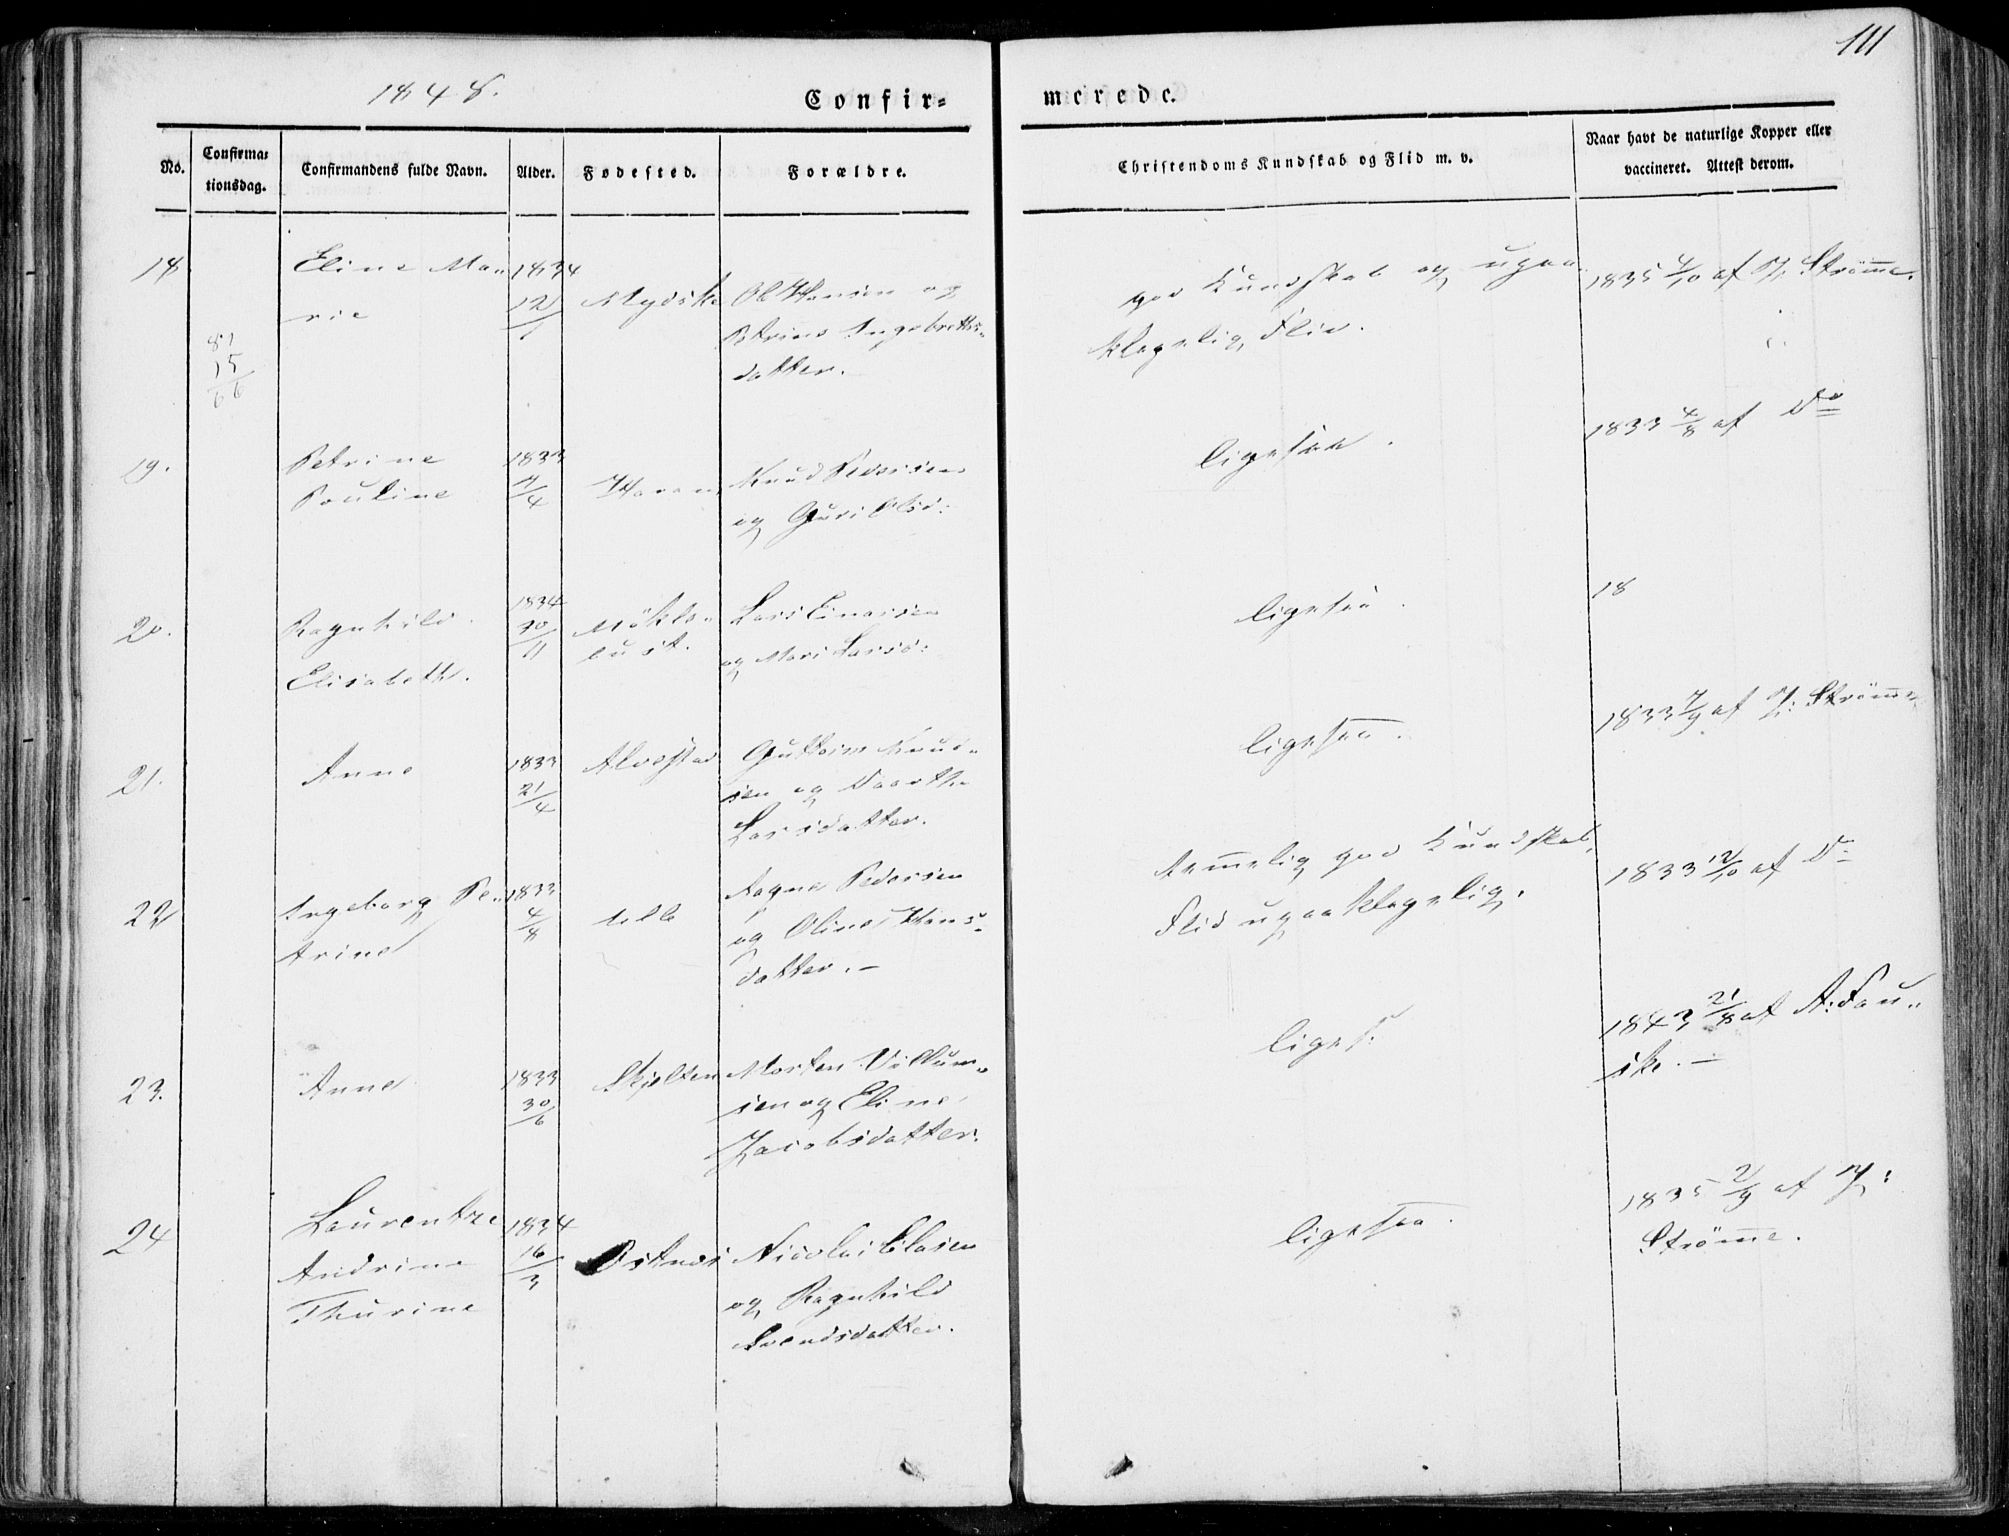 111
1848.
Confir=
merede.
No.
Confirma=
tionsdag.
Confirmandens fulde Navn.
Alder.
Fødested.
Forældre.
Christendoms Kundskab og Flid m. v.
Naar havt de naturlige Kopper eller
vaccineret. Attest derom.
18
Eline Ma-
rie
1834
12/1
Ole Hansen og
Petrine Ingebretts-
datter.
god Kundskab og upaa-
klagelig Flid.
1835 4/10 af P. Strømme.
15
6
19.
Petrine
Pouline
1833
4
Knud Pedersen
og Guri Olsd:
ligesaa.
1833 4/8 af Do
20.
Ragnhild
Elisabeth.
1834
30/11
Mökle-
bust.
Lars Einarsen
og Mari Larsd:
ligesaa.
18
21.
Anne
1833
21/4
Alvestad
Guttorm Knud-
sen og
Larsdatter.
ligesaa.
1833 7/9 af P: Strømme.
22
Ingeborg Pe-
trine
1833
4/8
Aagne Pedersen
og Oline Hans-
datter. -
temmelig god Kundskab,
Flid upaaklagelig.
1833 12/10 af Do
23.
Anne
1833
30/6
Skjelten
Morten Villum-
sen og Eline
Jacobsdatter.
liges.
1843 21/8 af A: Fau-
ske. -
24
Laurentze
Andrine
Thurine
1834
16/3
Østnes
Nicolai Clasen
og Ragnhild
Svendsdatter.
ligesaa.
1835 2/9 af P:
Strømme.